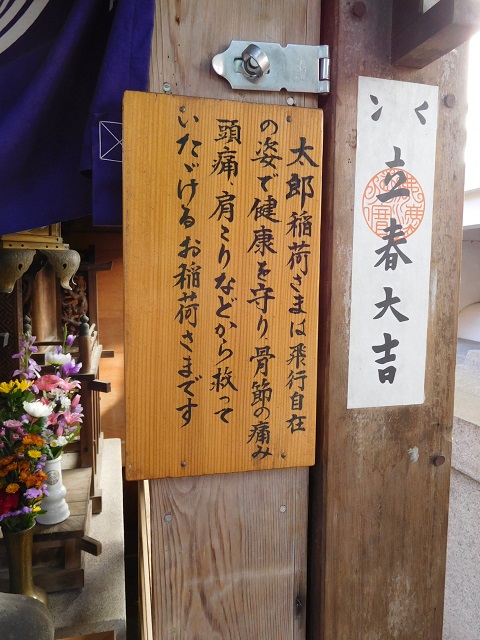 太郎稲荷さまは飛行自在
の姿で健康を守り骨節の痛み
頭痛、肩こりなどから救って
いたゞけるお稲荷さまです
立春大吉